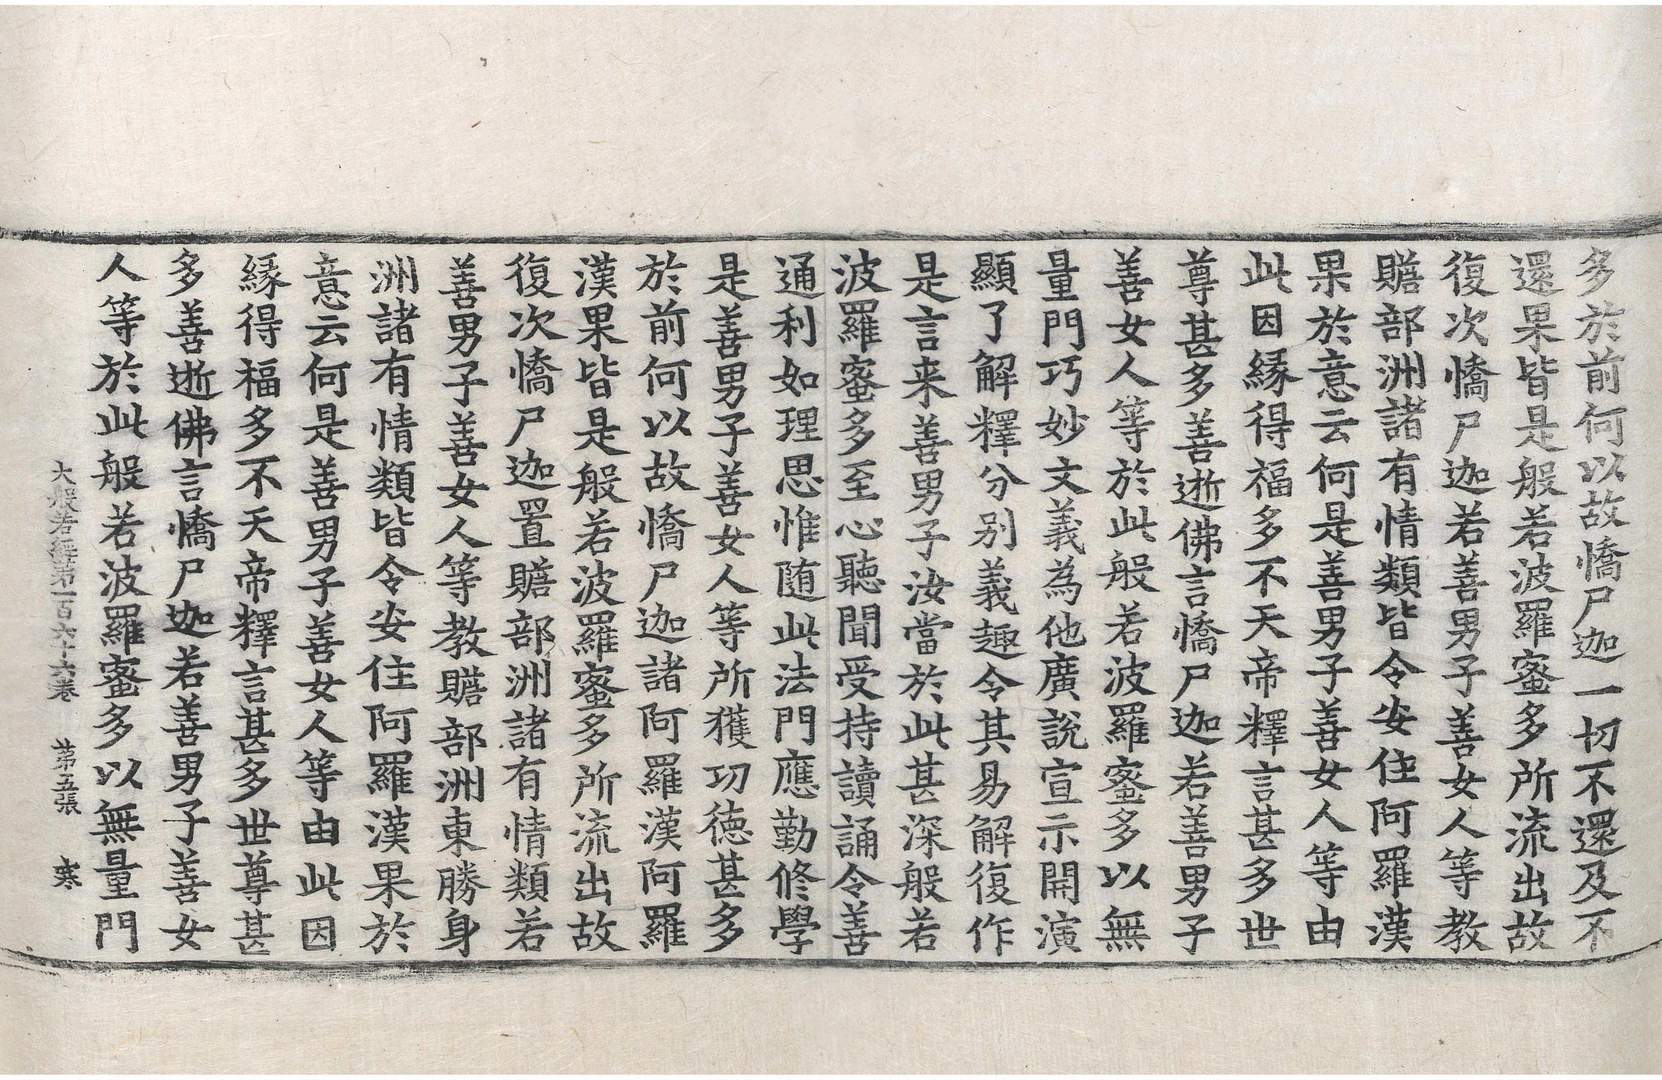 多於前何以故憍尸迦一切不還及不
還果皆是般若波羅蜜多所流出故
復次憍尸迦若善男子善女人等教
贍部洲諸有情類皆令安住阿羅漢
果於意云何是善男子善女人等由
此因緣得福多不天帝釋言甚多世
尊甚多善逝佛言憍尸迦若善男子
善女人等於此般若波羅蜜多以無
量門巧妙文義為他廣說宣示開演
顯了解釋分別義趣令其易解復作
是言来善男子汝當於此甚深般若
波羅蜜多至心聽聞受持讀誦令善
通利如理思惟随此法門應勤修學
是善男子善女人等所獲功德甚多
於前何以故憍尸迦諸阿羅漢阿羅
漢果皆是般若波羅蜜多所流出故
復次憍尸迦置贍部洲諸有情類若
善男子善女人等教贍部洲東勝身
洲諸有情類皆令安住阿羅漢果於
意云何是善男子善女人等由此因
緣得福多不天帝釋言甚多世尊甚
多善逝佛言憍尸迦若善男子善女
人等於此般若波羅蜜多以無量門
大般若經第一百六十六卷 第五張 寒